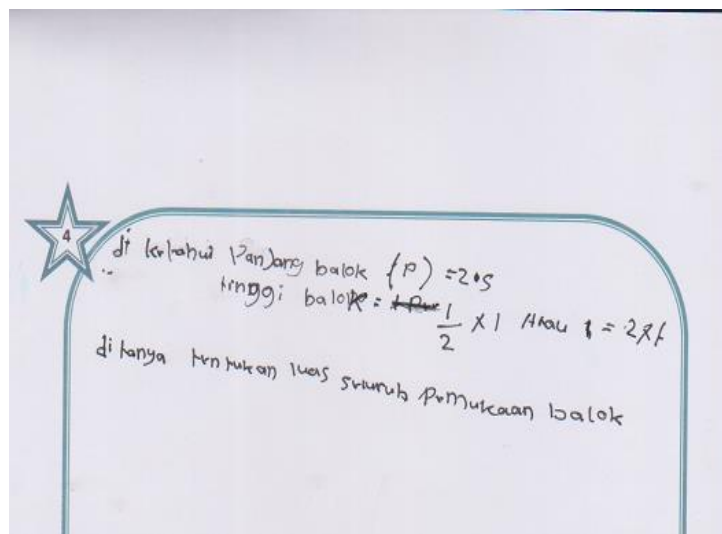 4
di ketahui Panjang balok (P) = 2.s
tinggi balok = 1/2 x l Atau l = 2xt
di tanya tentukan luas seluruh Permukaan balok